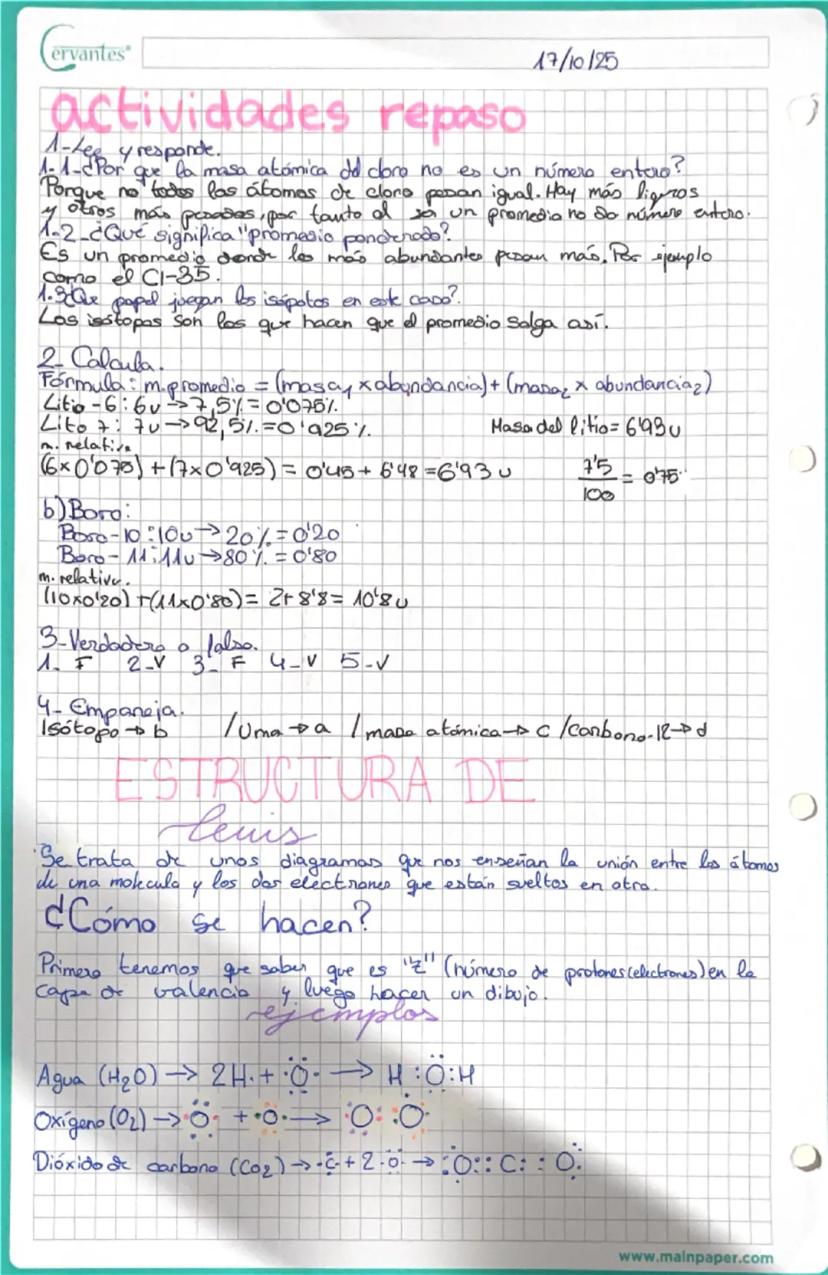 Cervantes®
17/10/25
actividades repaso
1-Lee y responde.
1.1-¿Por que la masa atómica del cloro no es un número entero?
Porque no todos los átomos de cloro pesan igual. Hay más ligeros
y otros más pesados, por tanto al ser un promedio no es número entero.
1.2-¿Qué significa "promedio ponderado?
Es un promedio donde los más abundantes pesan más. Por ejemplo
como el Cl-35.
1.3¿Que papel juegan los isópotos en este caso?
Los isótopos son los que hacen que el promedio salga así.
2- Calcula.
Fórmula: m.promedio = (masa₁ x abundancia) + (masa₂ x abundancia₂)
Litio -6: 6u → 7,5% = 0'075%
Lito 7: 7u → 92,5% = 0'925%
Masa del litio = 6'93 u
m. relativa
(6x0'075) + (7x0'925) = 0'45 + 6'48 = 6'93 u
7'5/100 = 0'75
b) Boro:
Boro-10: 10u → 20% = 0'20
Boro-11: 11u → 80% = 0'80
m. relativa.
(10x0'20) + (11x0'80) = 2+ 8'8 = 10'8 u
3-Verdadero o falso.
1- F 2-V 3- F 4-V 5-V
4- Empareja.
Isótopo → b /Uma → a / masa atómica → c /carbono-12 → d
ESTRUCTURA DE
lewis
Se trata de unos diagramas que nos enseñan la unión entre los átomos
de una molecula y los dos electrones que están sueltos en otra.
¿Cómo se hacen?
Primero tenemos que saber que es "Z" (número de protones(electrones) en la
capa de valencia y luego hacer un dibujo.
ejemplos
Agua (H₂O) → 2H· + ·Ö· → H:Ö:H
Oxígeno (O₂) → ·Ö· + ·O· → :O: :O:
Dióxido de carbono (CO₂) → ·C· + 2·O· → :O::C::O:
www.mainpaper.com